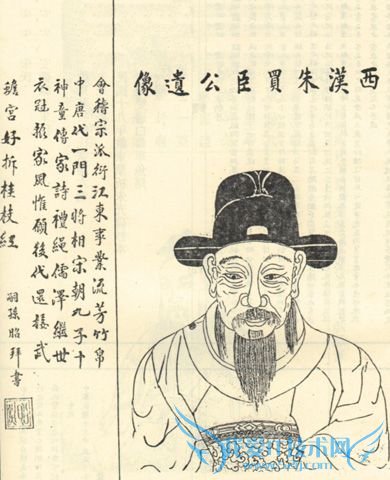 西漢朱買臣公遺像
會稽宗派衍江東事業流芳竹帛
中唐代一門三將相宋朝九子十
神童傳家詩禮繩儒澤繼世
衣冠家風惟願後代還接武
蟾宮好折桂枝紅
嗣孫昭拜書
技术网